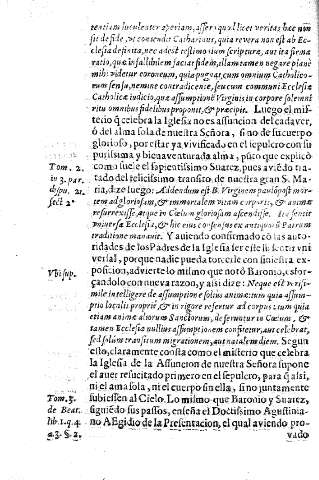 tentiam luculenter aperiam, asser: quod licet veritas hæc non
sit de fide, vt contendit Catharinus, quia revera non est ab Ec-
clesia definita, nec adest testimonium scripturæ, aut ita firma
ratio, quæ infallibilem faciat fidem, illam tamen negare planè
mihi videtur erroneum, quia pugnat, cum omnium Catholico-
rum sensu, nemine contradicente, seu cum communi Ecclesiæ
Catholicæ iudicio, quæ assumptionẽ Virginis in corpore solemni
ritu omnibus fidelibus proponit, & præcipit. Luego el mis-
terio q̃ celebra la Iglesia no es assuncion del cadaver,
ó del alma sola de nuestra Señora, si no de su cuerpo
glorioso, por estar ya vivificado en el sepulcro con su
purissima y bienaventurada alma, pues que explicò
Tom. 2. como fuele el sapientissimo Suarez, pues aviẽdo tra-
in 3. par. tado del felicissimo transito de nuestra gran S. Ma-
disput. 21. ria, dize luego: Addendum est B. Virginem paulò post mor-
sect. 2. tem ad gloriosam, & immortalem vitam corporis, & animæ
resurrexisse, atque in Cœlum gloriosam ascendisse. Ita sentit
universa Ecclesia, & hic eius consensus ex antiquorũ Patrum
traditione manavit. Y aviendo confirmado cõ las auto-
ridades de los Padres de la Iglesia ser este el sentir vni
versal, por que nadie pueda torcerle con siniestra ex-
Vbi sup. posicion, advierte lo mismo que notò Baronio, esfor-
çandolo con nueva razon, y assi dize: Neque est verisi-
mile intelligere de assumptione solius animæ: tum quia assum-
ptio localis propriè, & in rigore refertur ad corpus: tum quia
etiam animæ aliorum Sanctorum, deferuntur in Cœlum, &
tamen Ecclesia nullius assumptionem confitetur, aut celebrat,
sed solùm transitum migrationem, aut natalem diem. Segun
esto, claramente consta como el misterio que celebra
la Iglesia de la Assuncion de nuestra Señora supone
el aver resucitado primero en el sepulcro, para q̃ assi,
ni el ama sola, ni el cuerpo sin ella, sino juntamente
Tom. 3. subiessen al Cielo. Lo mismo que Baronio y Suarez,
de Beat. siguiẽdo sus passos, enseña el Doctissimo Agustinia-
lib. 1. q. 4 no A Egidio de la Presentacion, el qual aviendo pro-
a. 3. §. 2. vado